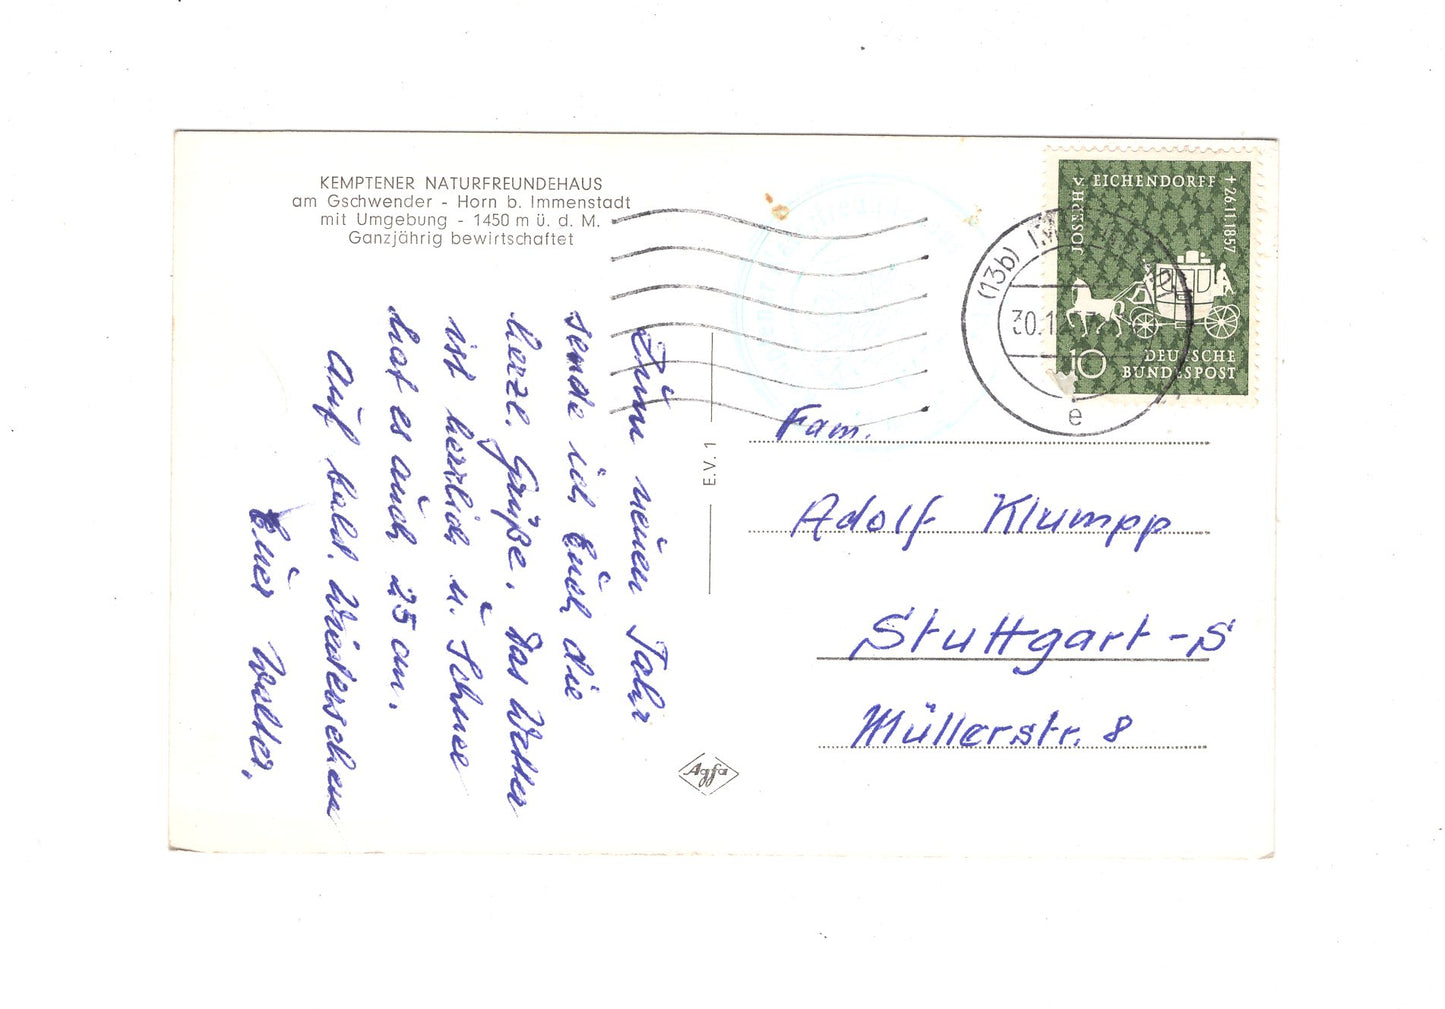 KEMPTENER NATURFREUNDEHAUS
am Gschwender - Horn b. Immenstadt
mit Umgebung - 1450 m ü. d. M.
Ganzjährig bewirtschaftet
Zum neuen Jahr
sende ich Euch die
herzl. Grüße. Das Wetter
ist herrlich u. Schnee
hat es auch 25 cm.
Auf bald. Wiedersehen
Euer Walter.
E.V. 1
Agfa
JOSEPH v. EICHENDORFF + 26.11.1857
10
DEUTSCHE
BUNDESPOST
(13b)
30.1
e
Fam.
Adolf Klumpp
Stuttgart-S
Müllerstr. 8